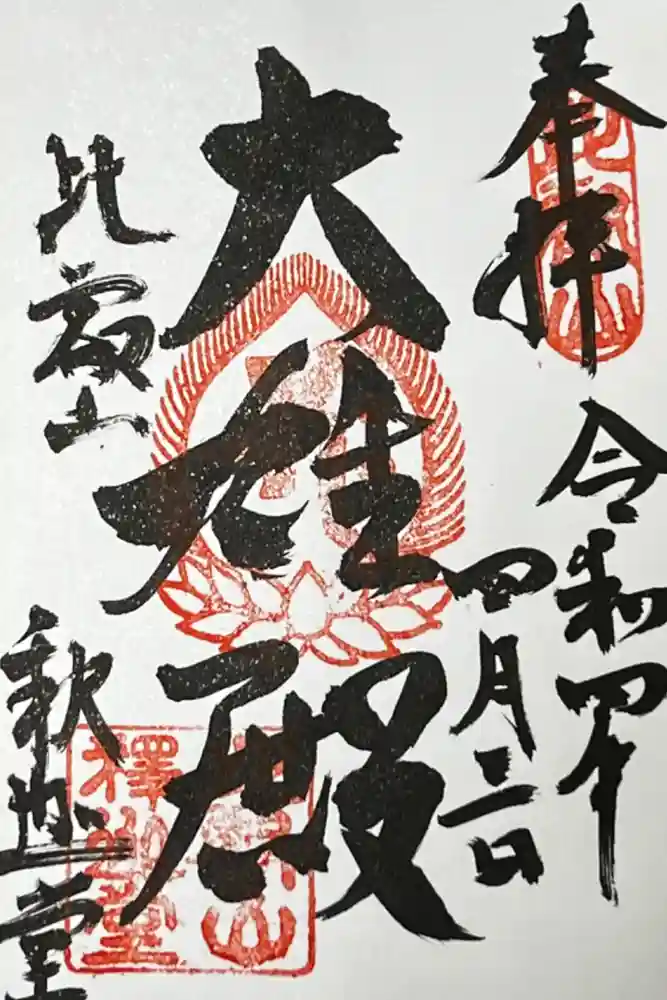 奉拝
令和四年
四月二日
大雄殿
比叡山
釈迦堂
比叡山
釋迦堂